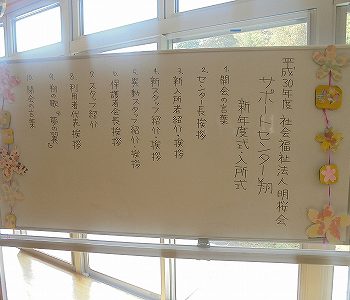 平成30年度 社会福祉法人明桜会
サポートセンター翔
新年度式・入所式
1. 開会の言葉
2. センター長挨拶
3. 新入所者紹介・挨拶
4. 新スタッフ紹介・挨拶
5. 異動スタッフ紹介・挨拶
6. 保護者会長挨拶
7. スタッフ紹介
8. 利用者代表挨拶
9. 翔の歌 "翼の翼"
10. 閉会の言葉